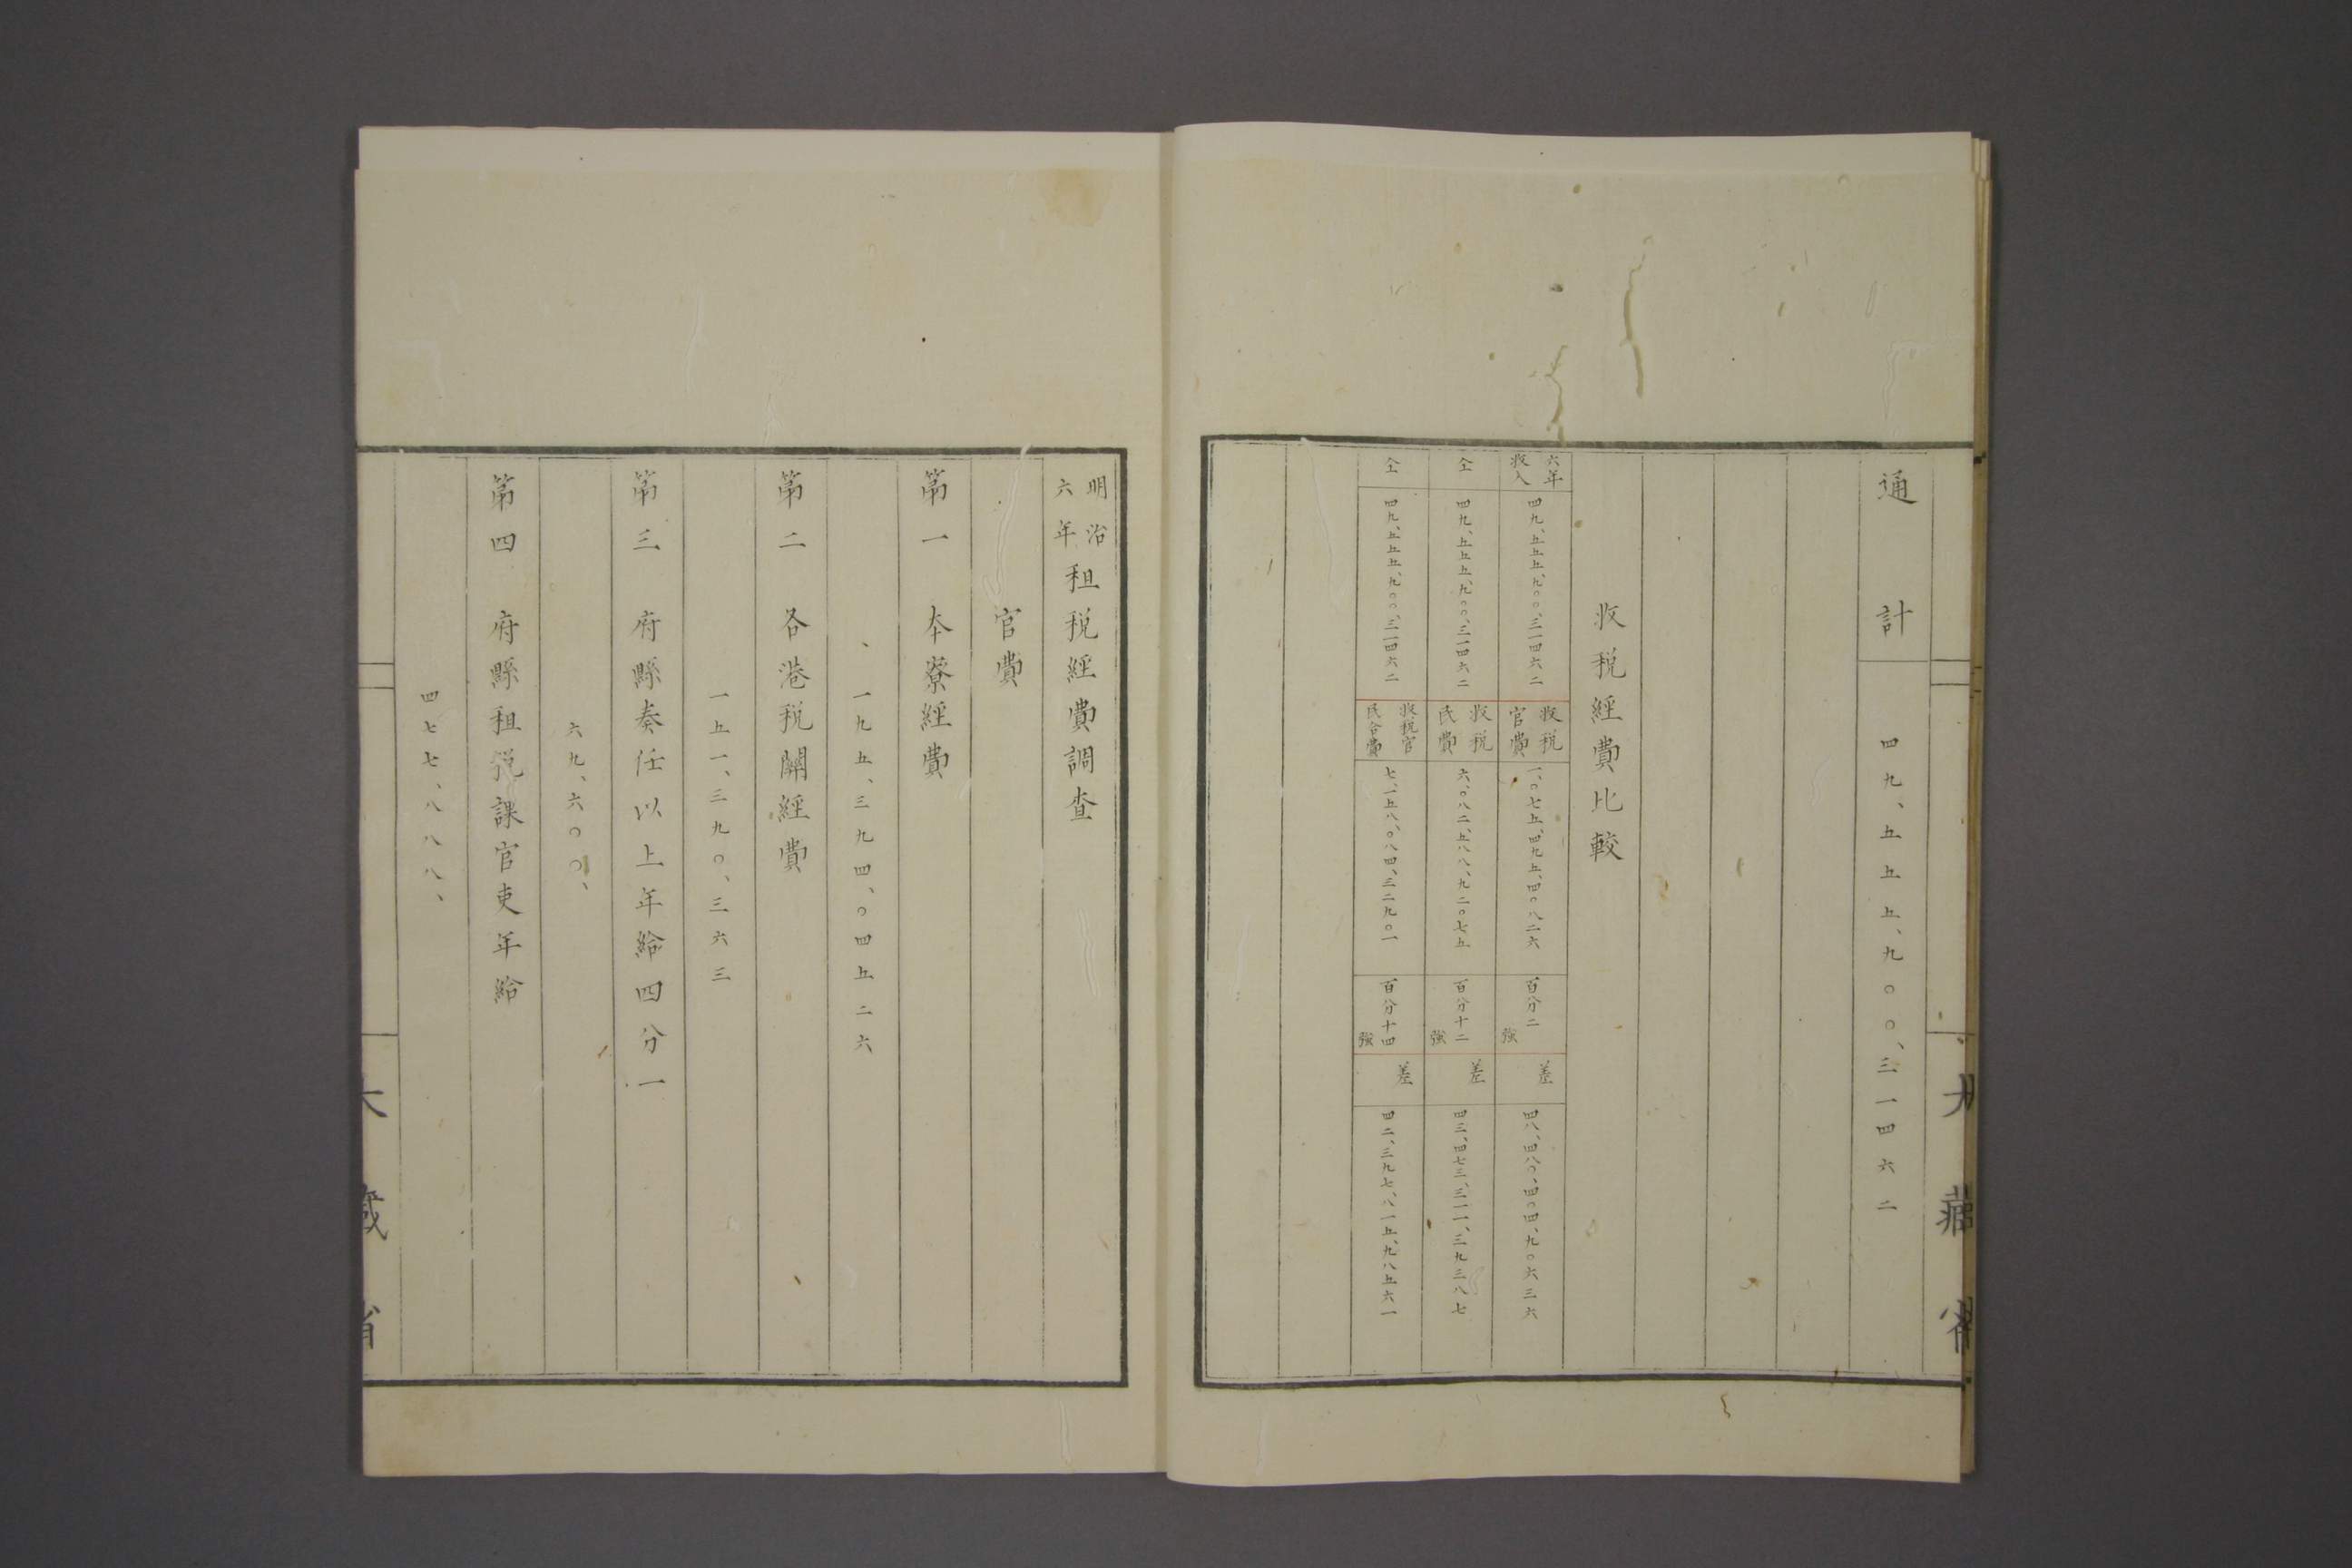 通計 四九、五五五、九〇〇、三一四六二
收税經費比較
六年收入 四九、五五五、九〇〇、三一四六二 收税官費 一、〇七五、四九五、四〇八二六 百分二強 差 四八、四八〇、四〇四、九〇六三六
仝 四九、五五五、九〇〇、三一四六二 收税民費 六、〇八二、五八八、九二〇七五 百分十二強 差 四三、四七三、三一一、三九三八七
仝 四九、五五五、九〇〇、三一四六二 收税官民合費 七、一五八、〇八四、三二九〇一 百分十四強 差 四二、三九七、八一五、九八五六一
大藏省
明治六年租税經費調查
官費
第一 本寮經費
一九五、三九四、〇四五二六
第二 各港税關經費
一五一、三九〇、三六三
第三 府縣奏任以上年給四分一
六九、六〇〇、
第四 府縣租税課官吏年給
四七七、八八八、
大藏省